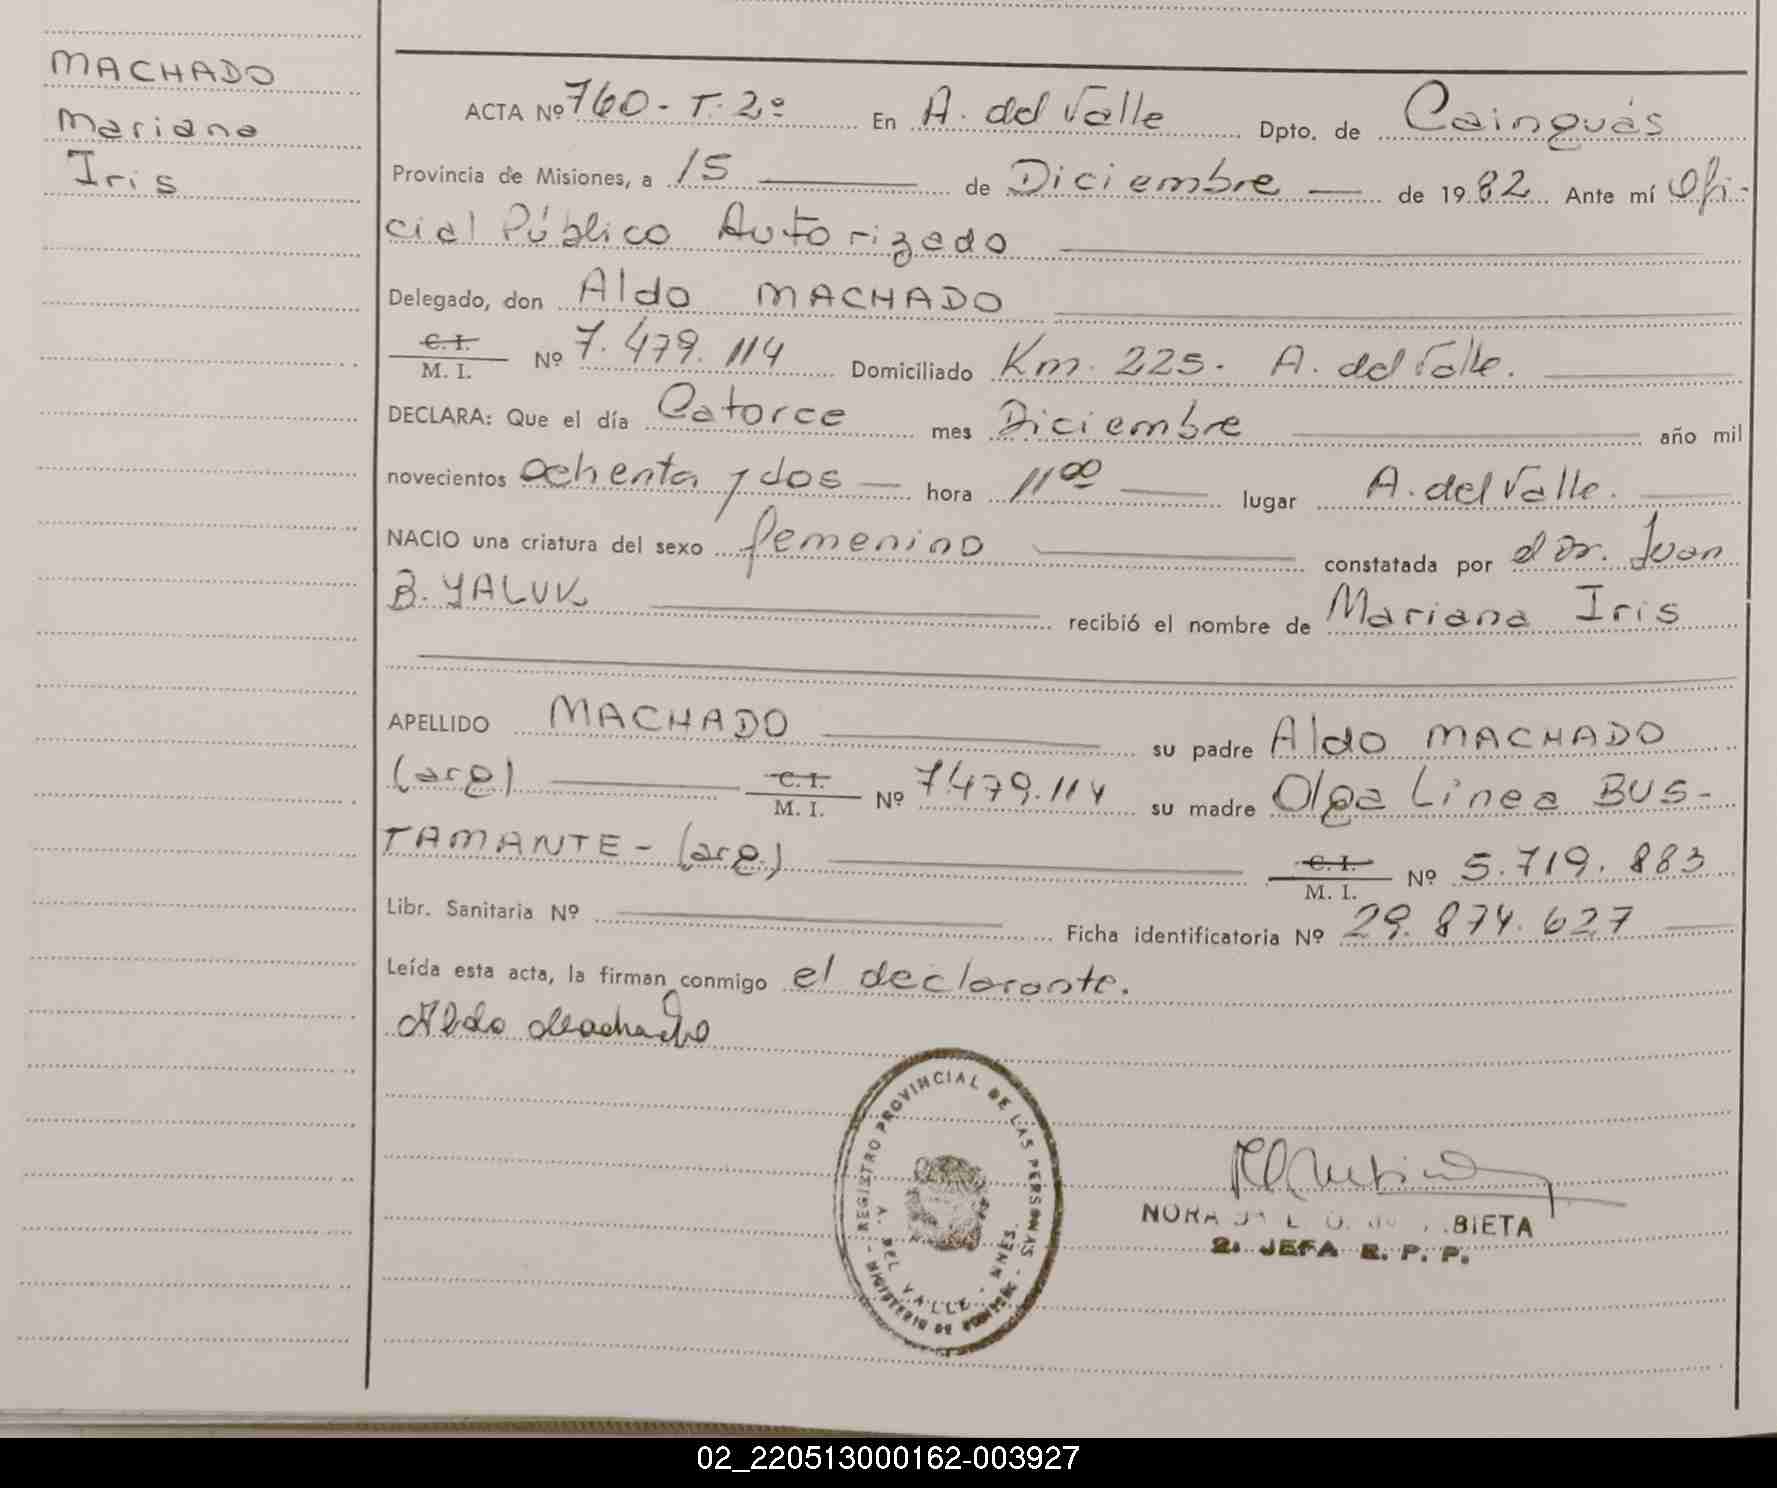 MACHADO
Mariana
Iris
ACTA Nº 760 - T. 2º En A. del Valle Dpto. de Cainguás
Provincia de Misiones, a 15 de Diciembre de 1982 Ante mí Ofi-
cial Público Autorizado
Delegado, don Aldo MACHADO
C. I.
M. I. Nº 7.479.114 Domiciliado Km. 225. A. del Valle.
DECLARA: Que el día Catorce mes Diciembre año mil
novecientos ochenta y dos hora 11 00 lugar A. del Valle.
NACIO una criatura del sexo femenino constatada por el Dr. Juan
B. YALUK recibió el nombre de Mariana Iris
APELLIDO MACHADO su padre Aldo MACHADO
(arg) C. I.
M. I. Nº 7.479.114 su madre Olga Linea BUS-
TAMANTE - (arg.) C. I.
M. I. Nº 5.719.883
Libr. Sanitaria Nº Ficha identificatoria Nº 29.874.627
Leída esta acta, la firman conmigo el declarante.
Aldo Machado
REGISTRO PROVINCIAL DE LAS PERSONAS
A. DEL VALLE - MNES.
MINISTERIO DE GOBIERNO
NORA BIETA
2. JEFA R. P. P.
02_220513000162-003927